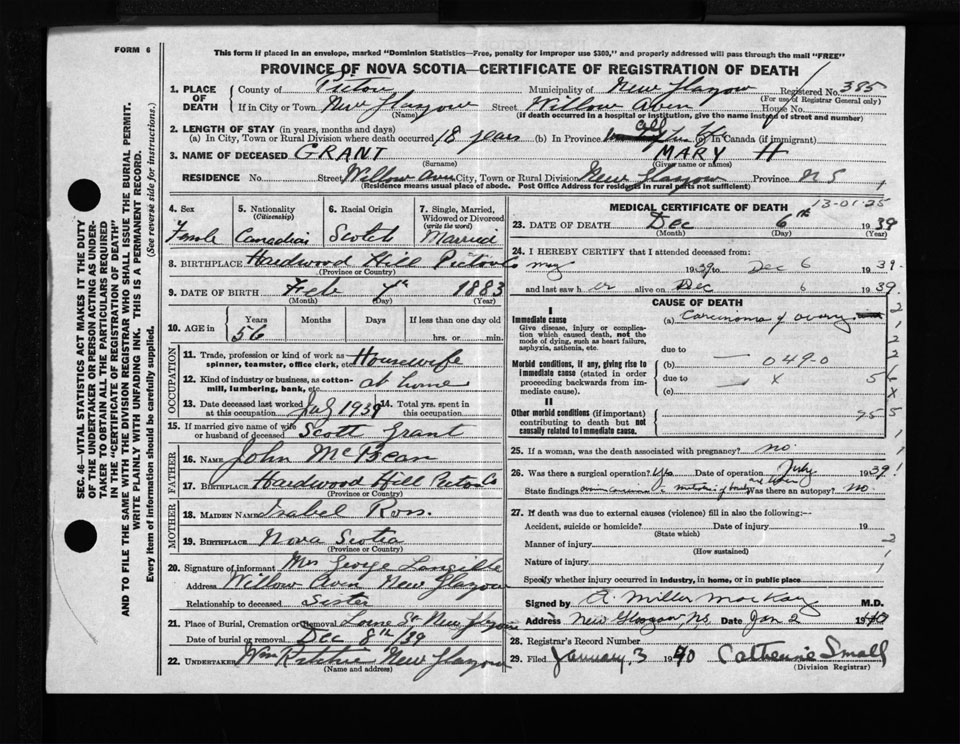 FORM 6
This form if placed in an envelope, marked "Dominion Statistics—Free, penalty for improper use $300," and properly addressed will pass through the mail "FREE"
PROVINCE OF NOVA SCOTIA—CERTIFICATE OF REGISTRATION OF DEATH
1. PLACE OF DEATH
County of Pictou Municipality of New Glasgow Registered No. 385
(For use of Registrar General only)
If in City or Town New Glasgow Street Willow Aven House No.
(Name) (If death occurred in a hospital or institution, give the name instead of street and number)
2. LENGTH OF STAY (in years, months and days)
(a) In City, Town or Rural Division where death occurred 18 years (b) In Province all her life (c) In Canada (if immigrant)
3. NAME OF DECEASED GRANT MARY H
(Surname) (Given name or names)
RESIDENCE No. Street Willow Aven City, Town or Rural Division New Glasgow Province N S
(Residence means usual place of abode. Post Office Address for residents in rural parts not sufficient)
4. Sex Female
5. Nationality (Citizenship) Canadian
6. Racial Origin Scotch
7. Single, Married, Widowed or Divorced (write the word) Married
8. BIRTHPLACE Hardwood Hill Pictou Co
(Province or Country)
9. DATE OF BIRTH Feb 7th 1883
(Month) (Day) (Year)
10. AGE in Years Months Days If less than one day old
56 hrs. or min.
OCCUPATION
11. Trade, profession or kind of work as spinner, teamster, office clerk, etc. Housewife
12. Kind of industry or business, as cotton-mill, lumbering, bank, etc. at home
13. Date deceased last worked at this occupation July 1939 14. Total yrs. spent in this occupation
15. If married give name of wife or husband of deceased Scott Grant
FATHER
16. NAME John McBean
17. BIRTHPLACE Hardwood Hill Pictou Co
(Province or Country)
MOTHER
18. MAIDEN NAME Isabel Ross.
19. BIRTHPLACE Nova Scotia
(Province or Country)
20. Signature of informant Mrs George Langille
Address Willow Aven New Glasgow
Relationship to deceased Sister
21. Place of Burial, Cremation or Removal Lorne St. New Glasgow
Date of burial or removal Dec 8th/39
22. UNDERTAKER Wm Ritchie New Glasgow
(Name and Address)
MEDICAL CERTIFICATE OF DEATH 13-01-25
23. DATE OF DEATH Dec 6th 1939
(Month) (Day) (Year)
24. I HEREBY CERTIFY that I attended deceased from:
May 1939 to Dec 6 1939.
and last saw her alive on Dec 6 1939.
CAUSE OF DEATH
I
Immediate cause (a) Carcinoma of ovary
Give disease, injury or complication which caused death, not the mode of dying, such as heart failure, asphyxia, asthenia, etc.
due to
Morbid conditions, if any, giving rise to immediate cause (stated in order proceeding backwards from immediate cause). (b) — 0490
due to — x 5
(c)
II
Other morbid conditions (if important) contributing to death but not causally related to immediate cause.
25. If a woman, was the death associated with pregnancy? no
26. Was there a surgical operation? Yes Date of operation July 1939
State findings Was there an autopsy? No
27. If death was due to external causes (violence) fill in also the following:—
Accident, suicide or homicide? Date of injury 19
(State which)
Manner of injury
(How sustained)
Nature of injury
Specify whether injury occurred in industry, in home, or in public place
Signed by A. Miller MacKay M.D.
Address New Glasgow, N.S. Date Jan 2 1940
28. Registrar's Record Number
29. Filed January 3 1940 Catherine Small
(Division Registrar)
SEC. 46—VITAL STATISTICS ACT MAKES IT THE DUTY
OF THE UNDERTAKER OR PERSON ACTING AS UNDER-
TAKER TO OBTAIN ALL THE PARTICULARS REQUIRED
IN THE "CERTIFICATE OF REGISTRATION OF DEATH"
AND TO FILE THE SAME WITH THE DIVISION REGISTRAR WHO SHALL ISSUE THE BURIAL PERMIT.
WRITE PLAINLY WITH UNFADING INK. THIS IS A PERMANENT RECORD.
Every item of information should be carefully supplied. (See reverse side for instructions.)